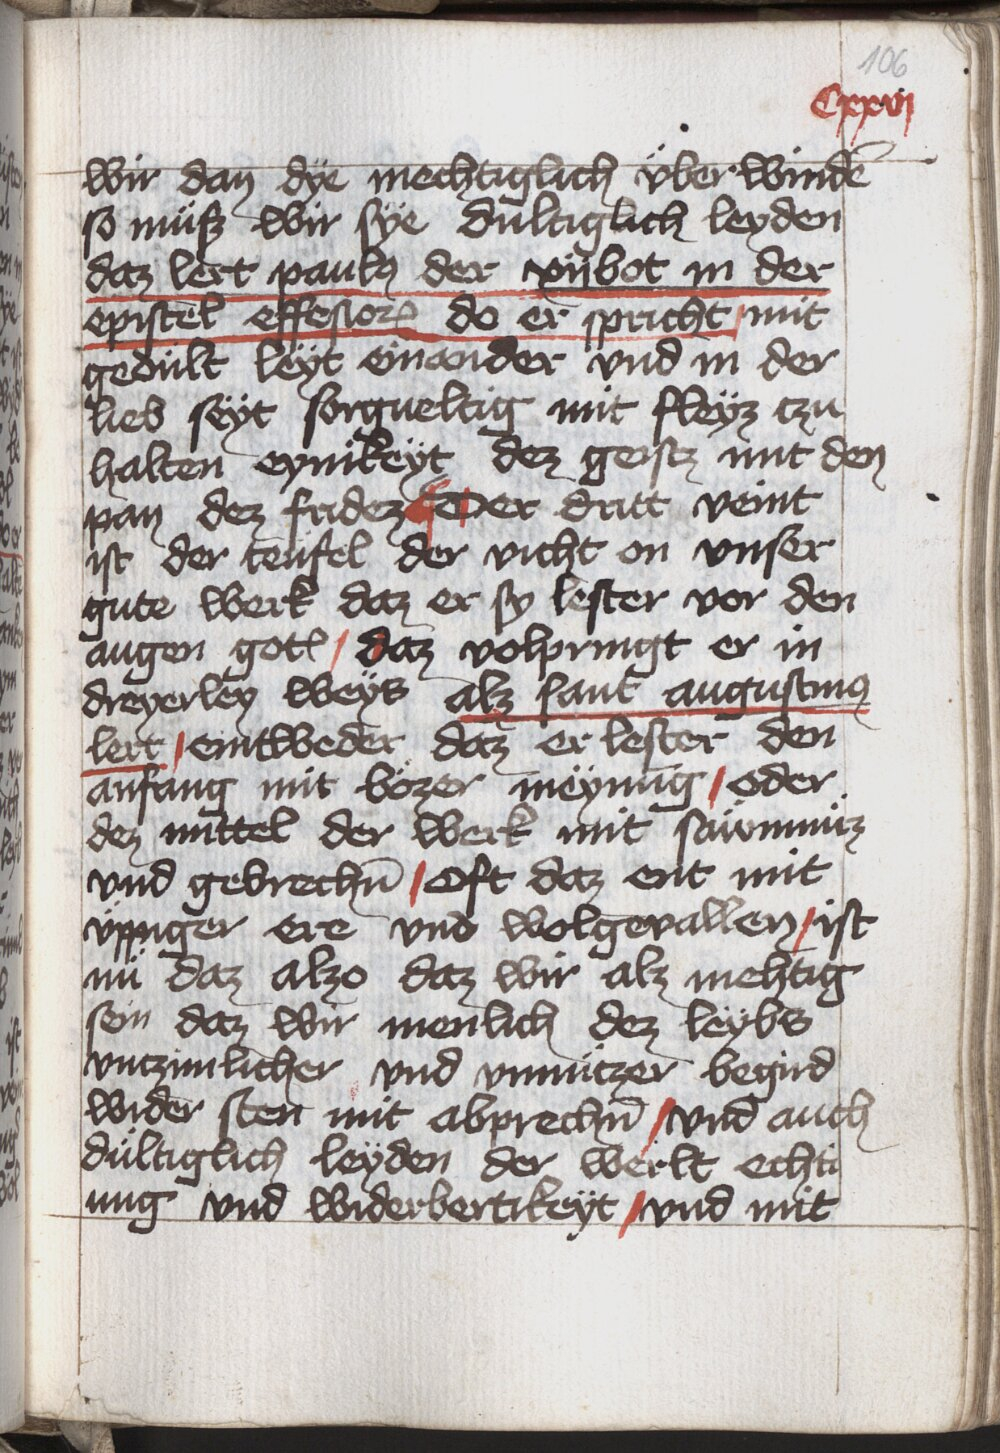 106
Cxxvij
wir dan dÿe mechtiglich ÿber windē
so müsß wir sÿe dultiglich leyden
daz lert paulꝰ der xijbot in der
epistel effesioꝝ do er spricht / mit
gedult leÿt einander vnd in der
lieb seÿt sorgueltig mit fleÿz czu
halten eynikeÿt dez geistz mit den
pan dez fridez Der dritt veint
ist der teüfel der vicht on vnser
gute werk daz er sy lester vor den
augen gotz / daz volpringt er in
dreyerley weÿs alz sant augustinꝰ
lert / eintweder daz er lester den
anfang mit bözer meynūg / oder
dez mittel der werk mit saẅmnüz
vnd gebrechn̄ / Oft daz ent mit
üppiger ere vnd wolgevallen / ist
nü daz alzo daz wir alz mehtig
sein daz wir menlich dez leÿbs
vnczimlicher vnd vnnüczer begird
wider sten mit abprechn̄ / vnd auch
dultiglich leyden der werlt echti
ung vnd widerbertikeÿt / vnd mit